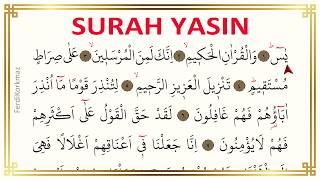 SURAH YASIN
يٰسٓ ۝ وَالْقُرْاٰنِ الْحَكٖيمِ ۝ اِنَّكَ لَمِنَ الْمُرْسَلٖينَ ۝ عَلٰى صِرَاطٍ
مُسْتَقٖيمٍ ۝ تَنْزٖيلَ الْعَزٖيزِ الرَّحٖيمِ ۝ لِتُنْذِرَ قَوْمًا مَٓا اُنْذِرَ
اٰبَٓاؤُ۬هُمْ فَهُمْ غَافِلُونَ ۝ لَقَدْ حَقَّ الْقَوْلُ عَلٰٓى اَكْثَرِهِمْ
فَهُمْ لَا يُؤْمِنُونَ ۝ اِنَّا جَعَلْنَا فٖٓي اَعْنَاقِهِمْ اَغْلَالًا فَهِيَ
FerdiKorkmaz